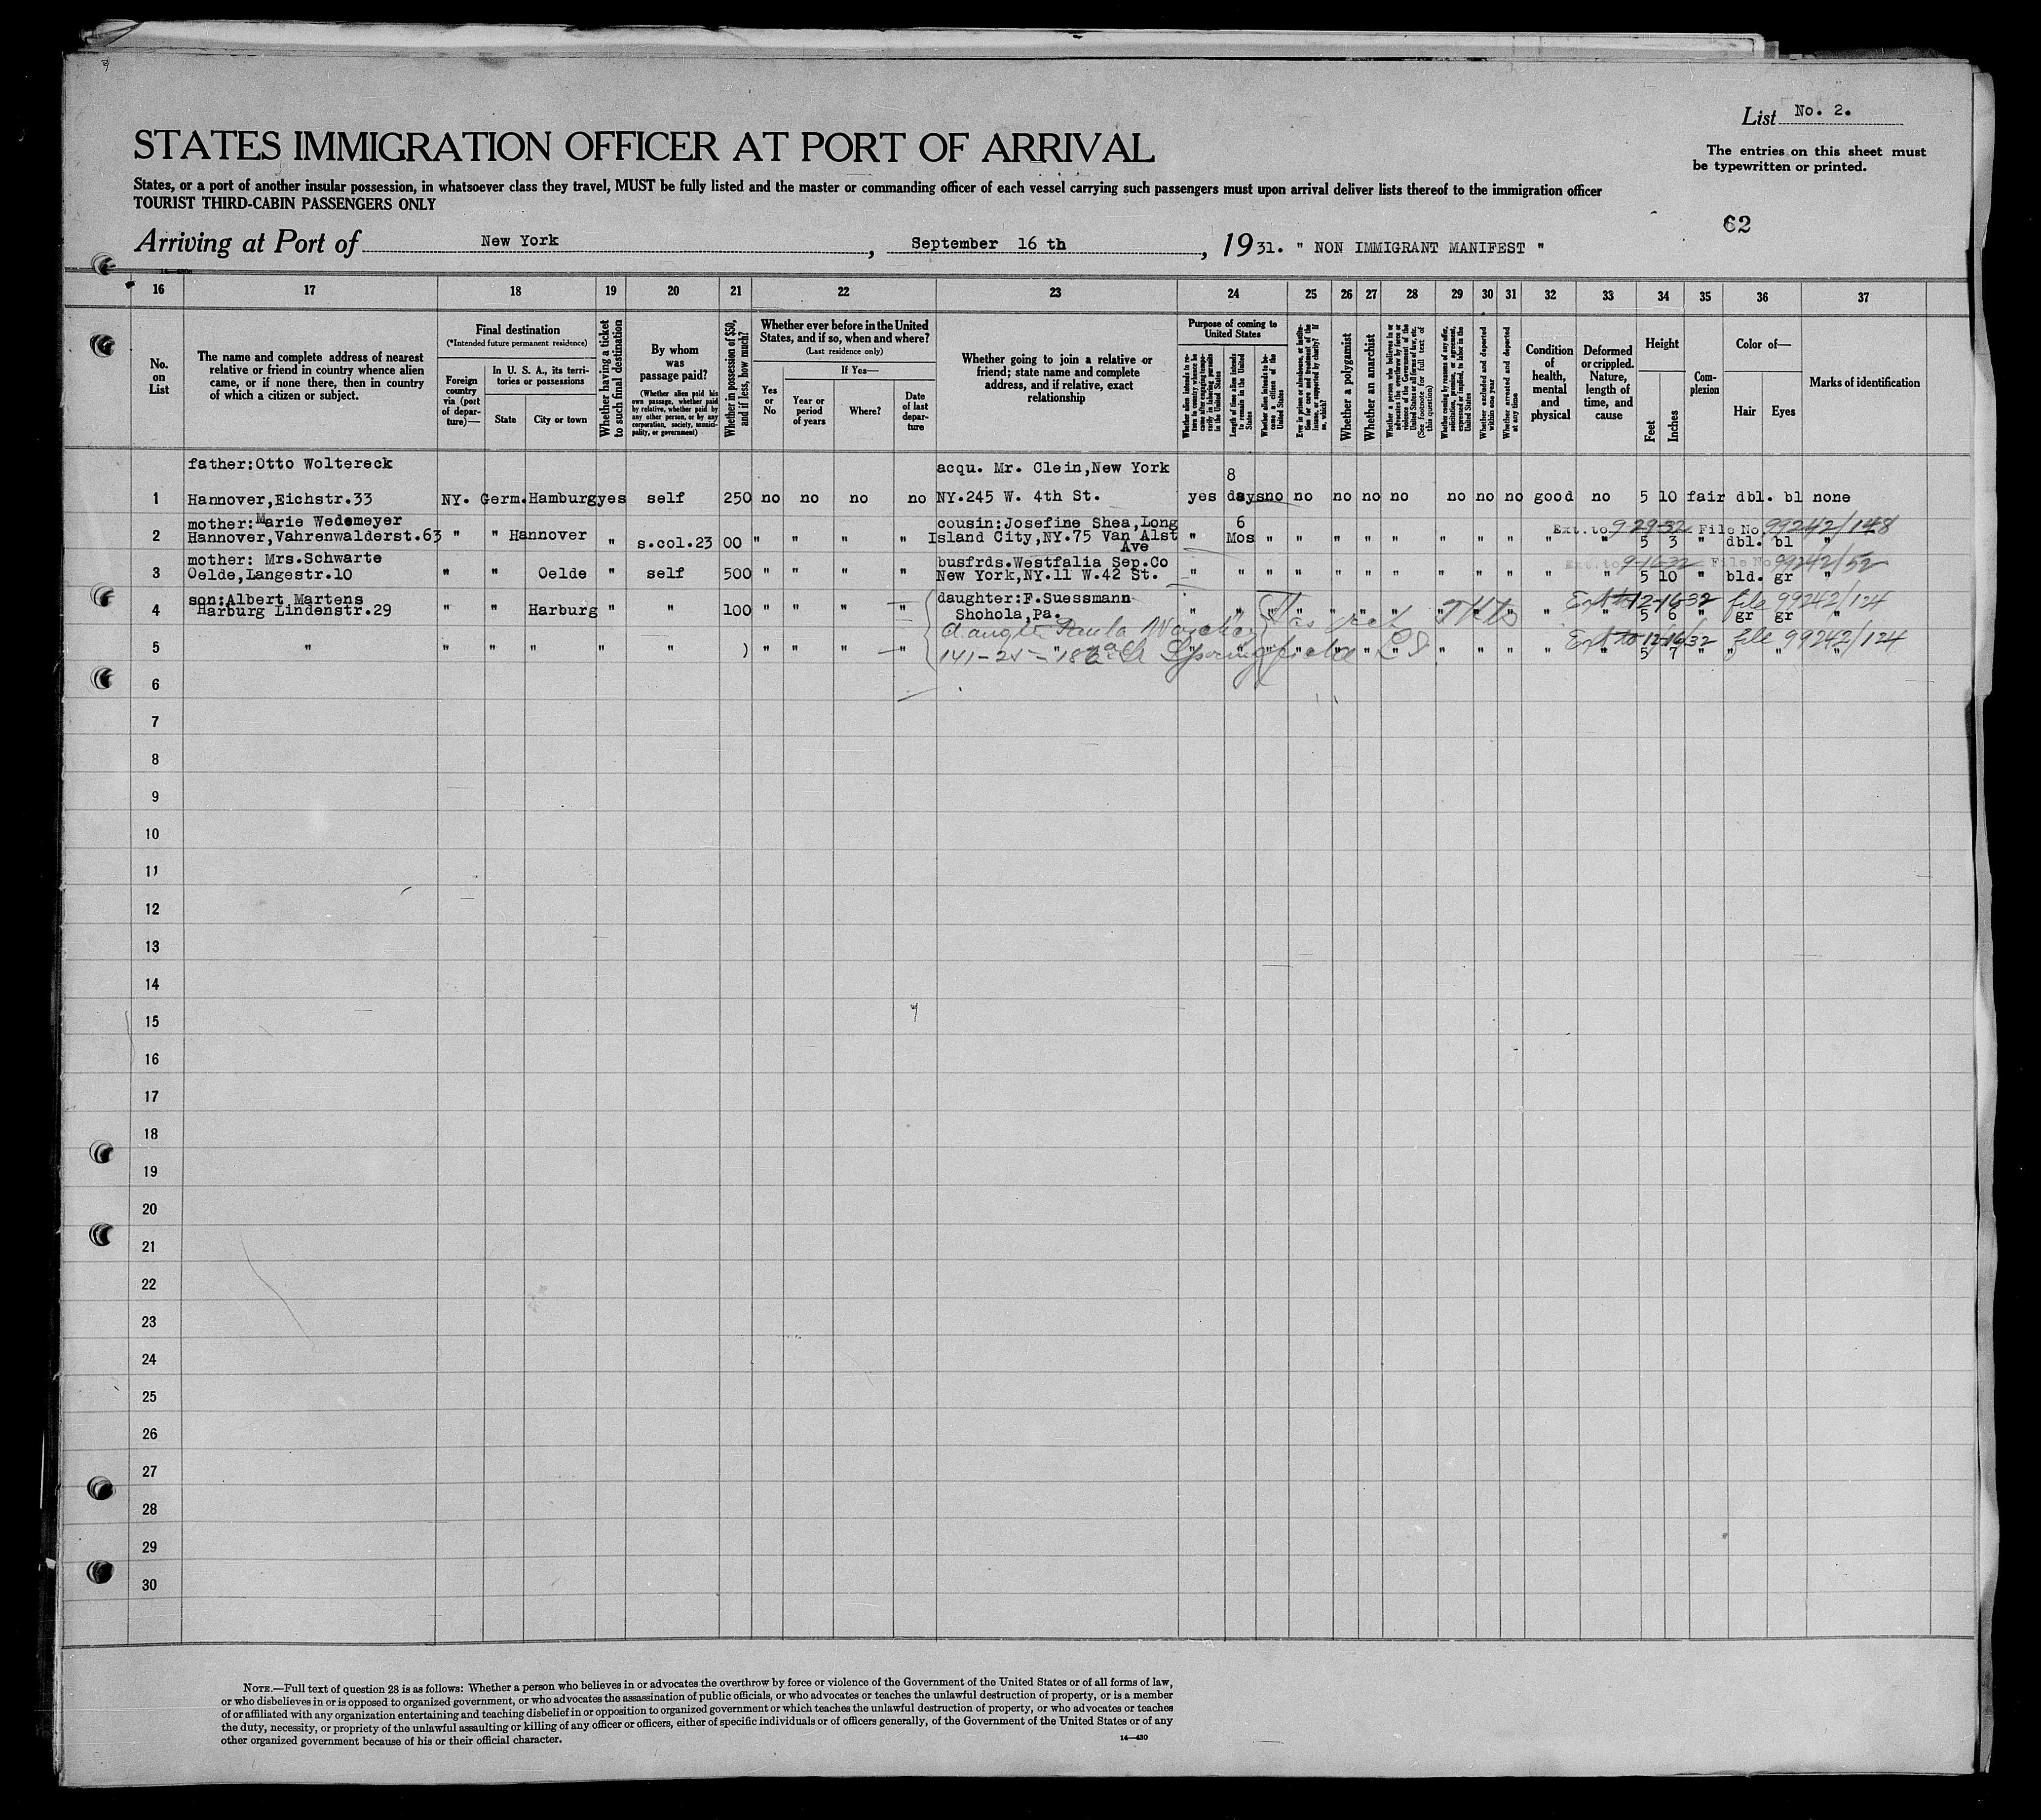 List No. 2.
STATES IMMIGRATION OFFICER AT PORT OF ARRIVAL
The entries on this sheet must
be typewritten or printed.
States, or a port of another insular possession, in whatsoever class they travel, MUST be fully listed and the master or commanding officer of each vessel carrying such passengers must upon arrival deliver lists thereof to the immigration officer
TOURIST THIRD-CABIN PASSENGERS ONLY
62
Arriving at Port of New York, September 16 th, 1931. " NON IMMIGRANT MANIFEST "
16 17 18 19 20 21 22 23 24 25 26 27 28 29 30 31 32 33 34 35 36 37
No. on List
The name and complete address of nearest relative or friend in country whence alien came, or if none there, then in country of which a citizen or subject.
Final destination
(*Intended future permanent residence)
Foreign country via (port of departure)—
In U. S. A., its territories or possessions
State
City or town
Whether having a ticket to such final destination
By whom was passage paid?
(Whether alien paid his own passage, whether paid by relative, whether paid by any other person, or by any corporation, society, municipality, or government)
Whether in possession of $50, and if less, how much?
Whether ever before in the United States, and if so, when and where?
(Last residence only)
Yes or No
If Yes—
Year or period of years
Where?
Date of last departure
Whether going to join a relative or friend; state name and complete address, and if relative, exact relationship
Purpose of coming to United States
Whether alien intends to return to country whence he came after engaging temporarily in laboring pursuits in the United States
Length of time alien intends to remain in the United States
Whether alien intends to become a citizen of the United States
Ever in prison or almshouse, or institution for care and treatment of the insane, or supported by charity? If so, which?
Whether a polygamist
Whether an anarchist
Whether a person who believes in or advocates the overthrow by force or violence of the Government of the United States or all forms of law, etc. (See footnote for full text of this question)
Whether coming by reason of any offer, solicitation, promise, or agreement, expressed or implied, to labor in the United States
Whether excluded and deported within one year
Whether arrested and deported at any time
Condition of health, mental and physical
Deformed or crippled. Nature, length of time, and cause
Height
Feet
Inches
Complexion
Color of—
Hair
Eyes
Marks of identification
father:Otto Woltereck acqu. Mr. Clein,New York 8
1 Hannover,Eichstr.33 NY. Germ. Hamburg yes self 250 no no no no NY.245 W. 4th St. yes days no no no no no no no no good no 5 10 fair dbl. bl none
mother:Marie Wedemeyer cousin:Josefine Shea,Long 6 Ext.to 9-29-32 File No. 99242/148
2 Hannover,Vahrenwalderst.63 " " Hannover " s.col.23 00 " " " " Island City,NY.75 Van Alst Ave " Mos " " " " " " " " " " 5 3 " dbl. bl "
mother: Mrs.Schwarte busfrds.Westfalia Sep.Co Ext.to 9-16-32 File No. 99242/52
3 Oelde,Langestr.10 " " Oelde " self 500 " " " " New York,NY.11 W.42 St. " " " " " " " " " " " " 5 10 " bld. gr "
son:Albert Martens daughter:F.Suessmann Ext to 12-16-32 file 99242/124
4 Harburg Lindenstr.29 " " Harburg " " 100 " " " " Shohola,Pa. " " " " " " " " " " " " 5 6 " gr gr "
Paula Ext to 12-16-32 file 99242/124
5 " " " " " " ) " " " " 141-25- Springfield " " " " " " " " " " " " 5 7 " " " "
6
7
8
9
10
11
12
13
14
15
16
17
18
19
20
21
22
23
24
25
26
27
28
29
30
NOTE.—Full text of question 28 is as follows: Whether a person who believes in or advocates the overthrow by force or violence of the Government of the United States or of all forms of law,
or who disbelieves in or is opposed to organized government, or who advocates the assassination of public officials, or who advocates or teaches the unlawful destruction of property, or is a member
of or affiliated with any organization entertaining and teaching disbelief in or opposition to organized government or which teaches the unlawful destruction of property, or who advocates or teaches
the duty, necessity, or propriety of the unlawful assaulting or killing of any officer or officers, either of specific individuals or of officers generally, of the Government of the United States or of any
other organized government because of his or their official character.
14—430